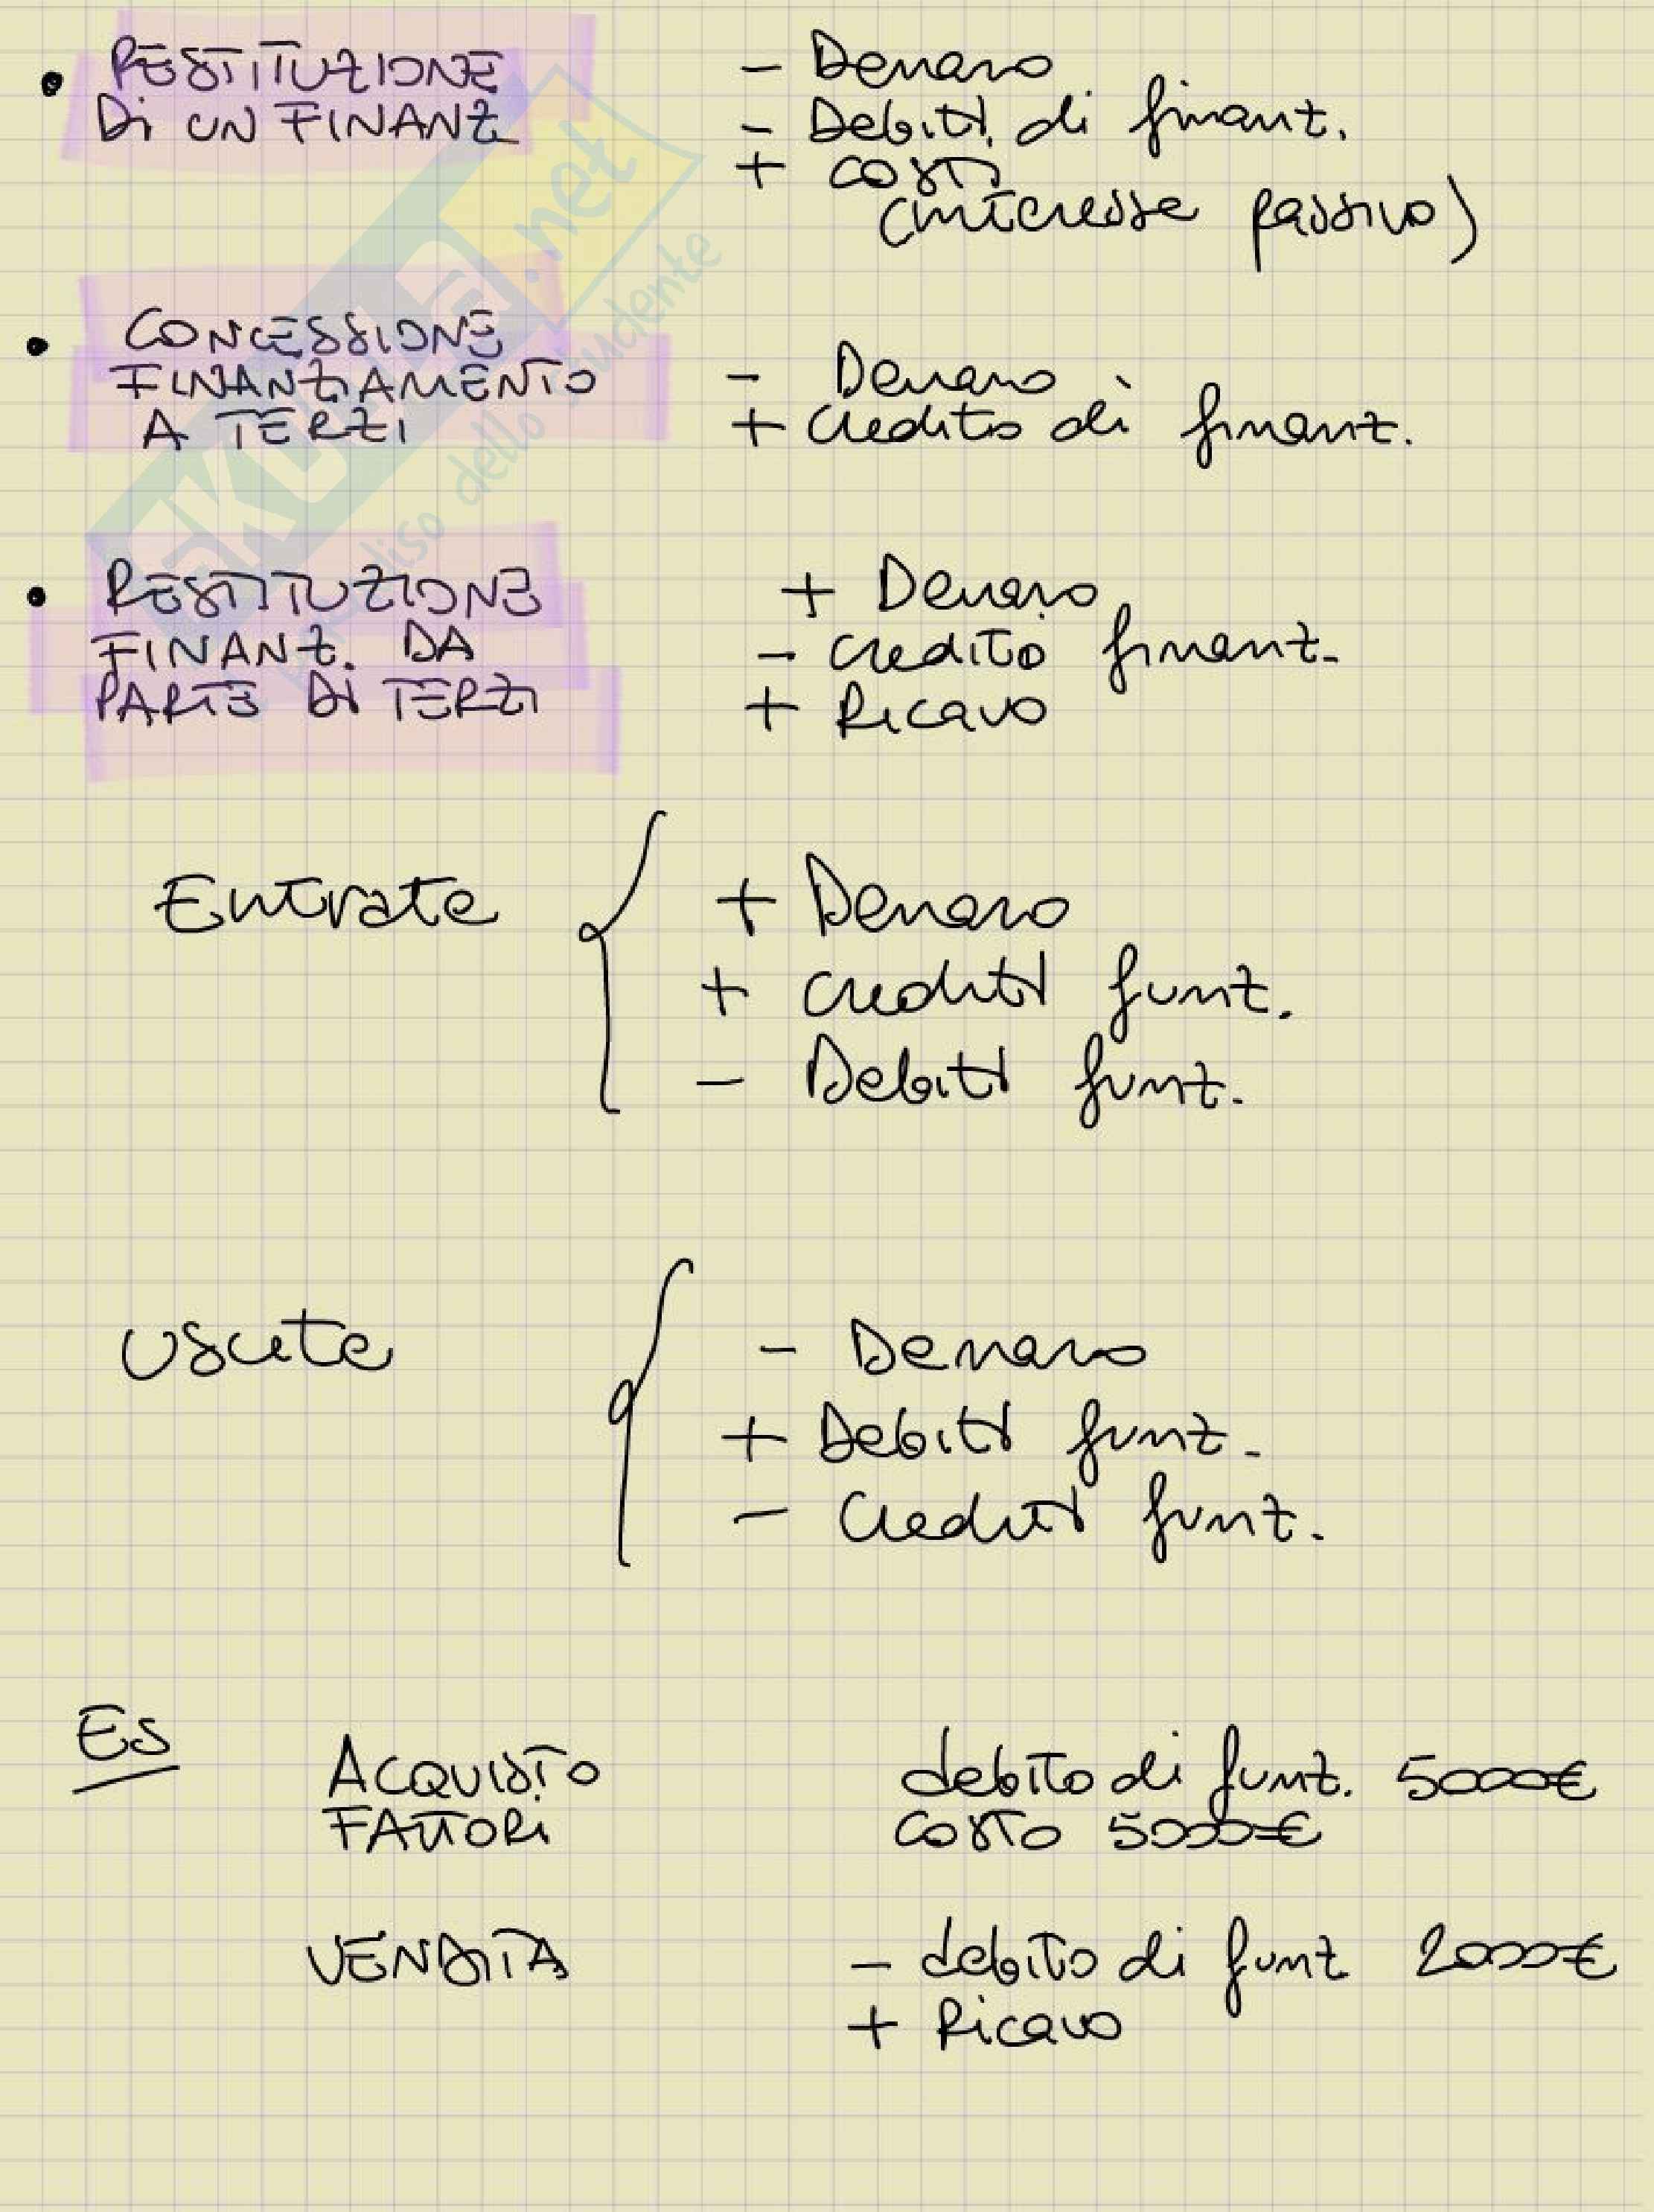 • RESTITUZIONE
Di UN FINANZ
- Denaro
- Debiti di finanz.
+ costi
(interesse passivo)
• CONCESSIONE
FINANZIAMENTO
A TERZI
- Denaro
+ Credito di finanz.
• RESTITUZIONE
FINANZ. DA
PARTE DI TERZI
+ Denaro
- credito finanz.
+ Ricavo
Entrate { + Denaro
+ crediti funz.
- Debiti funz.
Uscite { - Denaro
+ Debiti funz.
- Crediti funz.
Es
ACQUISTO
FATTORI
debito di funz. 5000€
costo 5000€
VENDITA
- debito di funz 2000€
+ Ricavo
skuola.net
paradiso dello studente